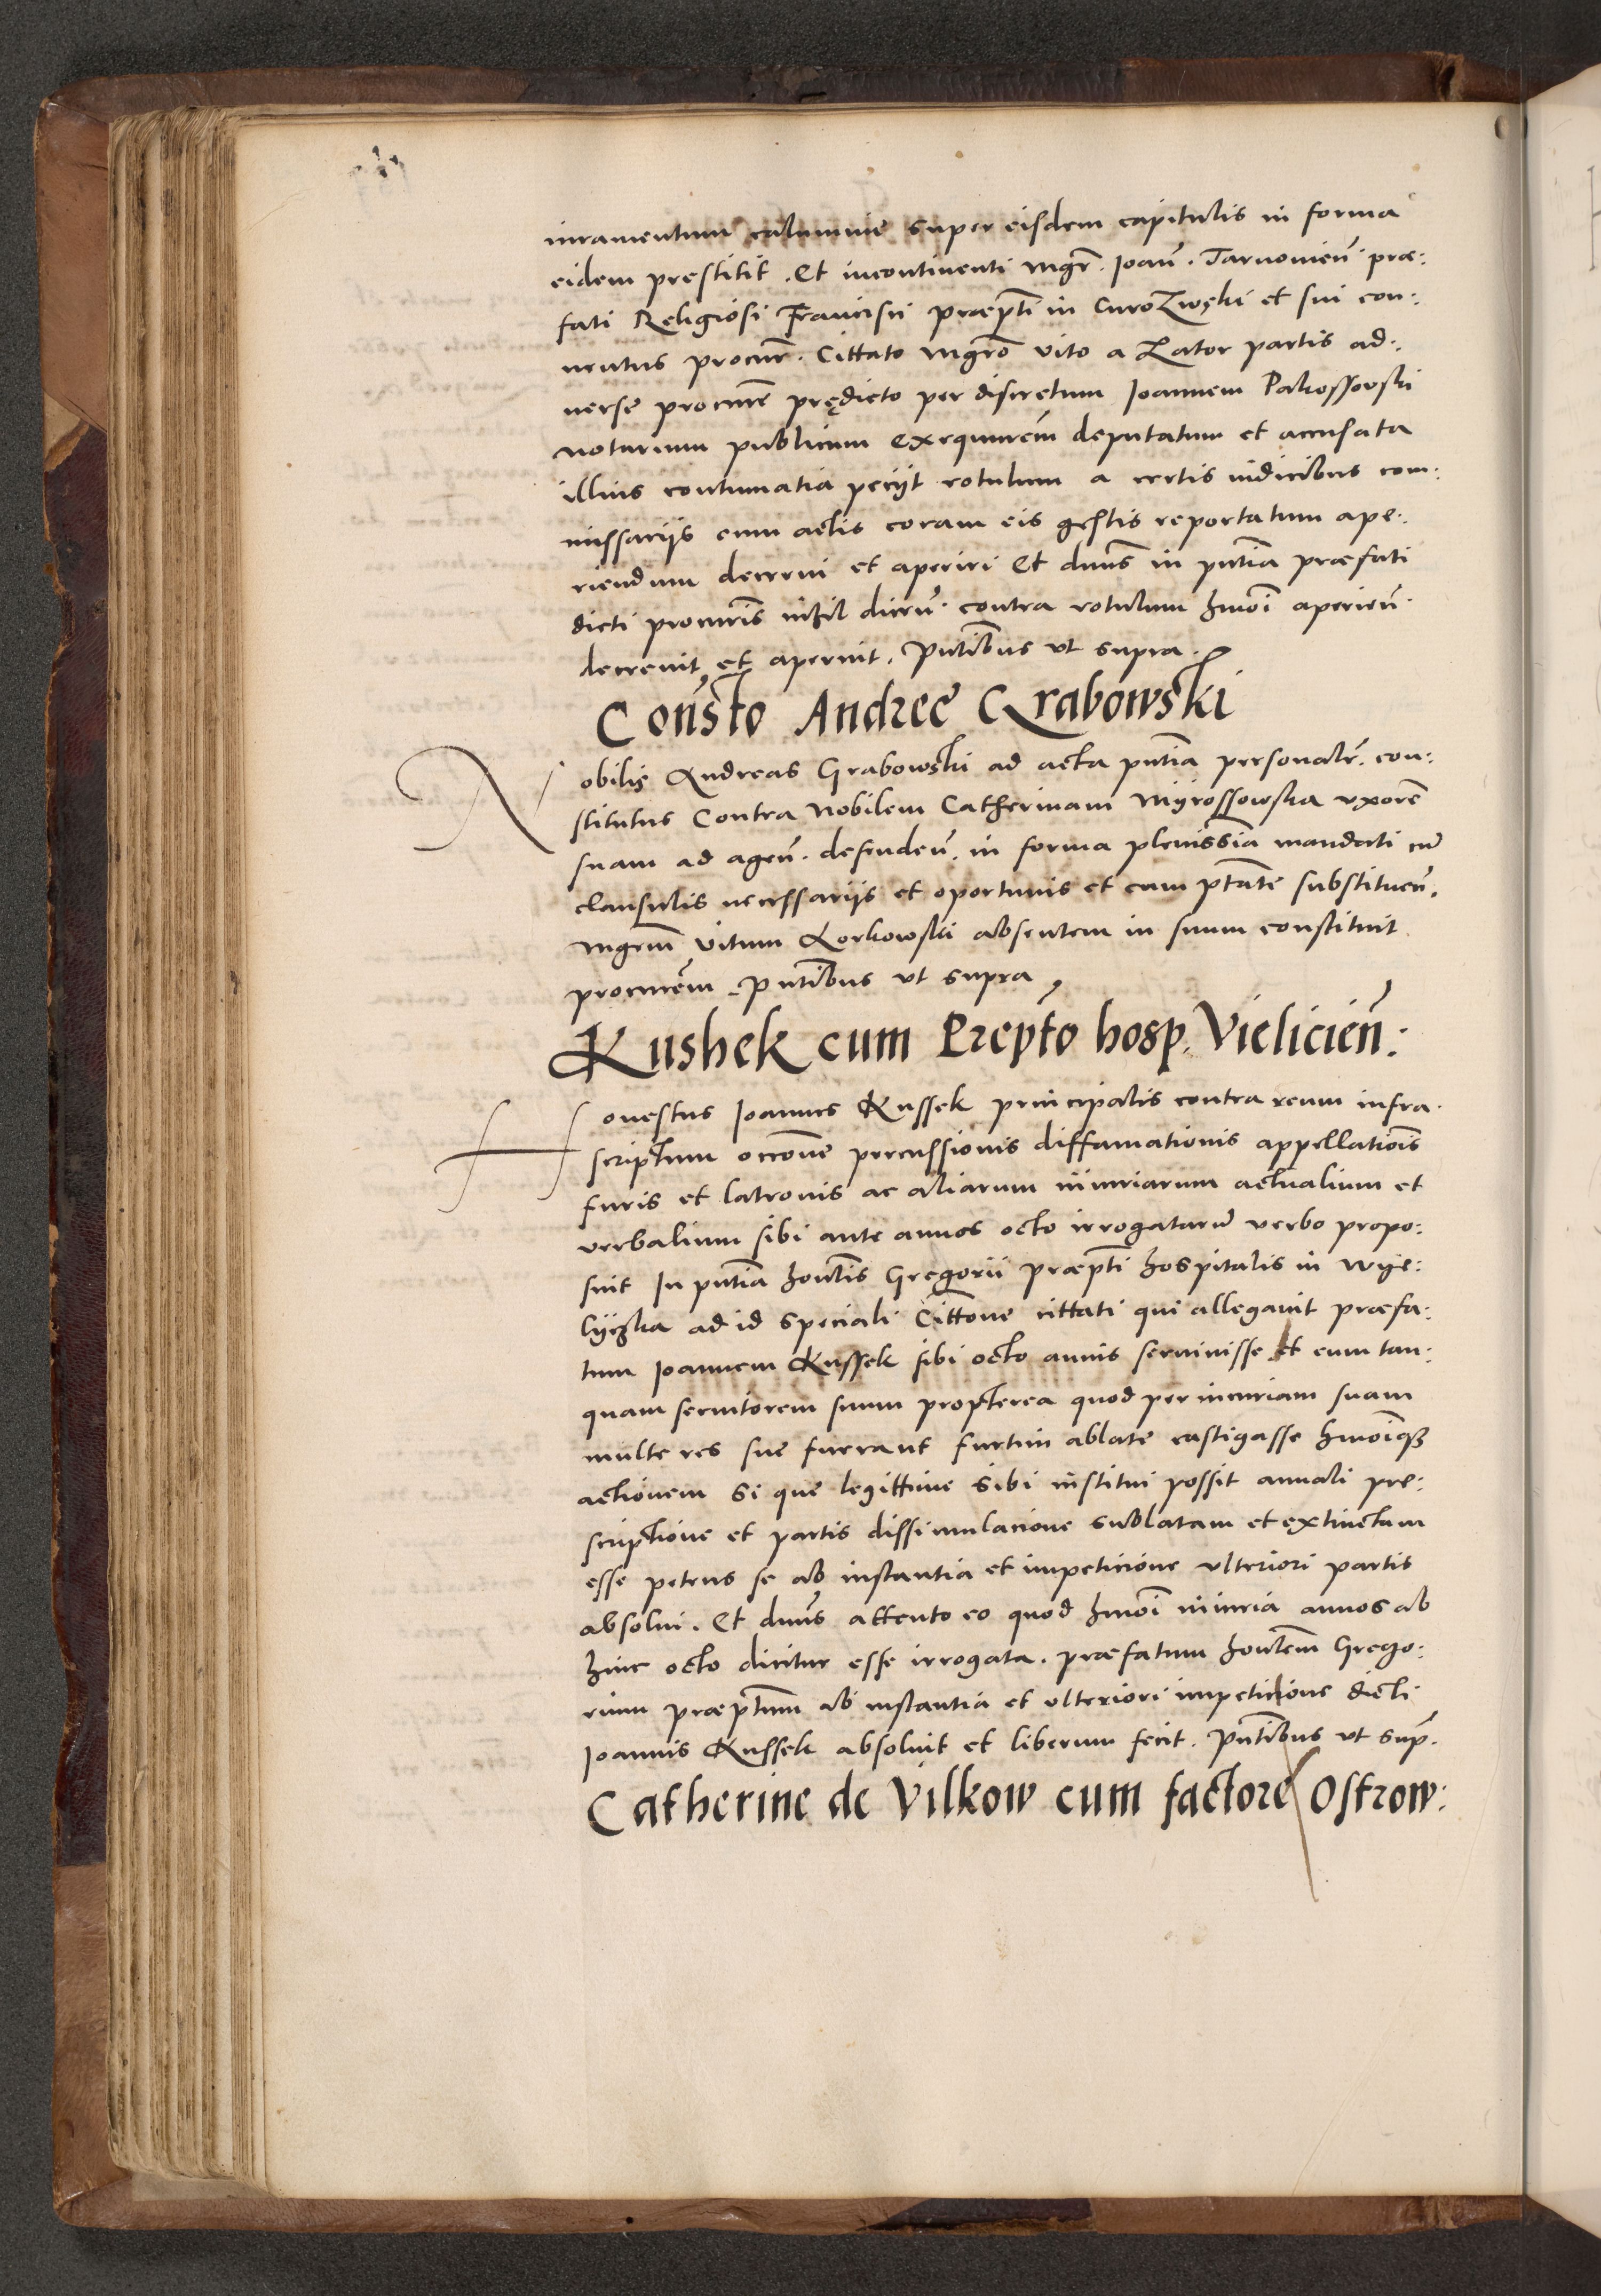 iuramentum calumnie super eisdem capitulis in forma
eidem prestitit . Et incontinenti mgr̄ . Ioan̄ . Tarnouien̄ præ:
fati Religiosi Francisci præpti in CuroZwęki et sui con:
uentus procur̄ . Cittato mgrō vito a Lator partis ad:
uerse procurē prędicto per discretum Ioannem Pakossowski
notarium publicum exequutem̄ deputatum et accusata
illius contumatia peciit rotulum a certis iudicibus com:
missariis cum actis coram eis gestis reportatum ape:
riendum decerni et aperiri Et dnūs in pn̄tia præfati
dicti procur̄is nihil dicen̄ . contra rotulum hmōi aperien̄ .
decreuit et aperuit . Pn̄tibus vt supra .
Consto Andree Grabowski
Nobilis Andreas Grabowski ad acta pn̄tia personalr̄ . con:
stitutus Contra Nobilem Catherinam Myrossowska vxorē
suam ad agen̄ . defenden̄ . in forma plenissīa mandati cū
clausulis necessariis et oportunis et cum ptāte substituen̄ .
mgrum̄ vitum Lorkowski absentem in suum constituit
procurēm . Pn̄tibus vt supra
Kushek cum Prepto hosp. Vielicien̄ :
Honestus Ioannes Kussek principalis contra reum infra
scriptum occōne percussionis diffamationis appellatiōis
furis et latronis ac aliarum iniuriarum actualium et
verbalium sibi ante annos octo irrogatarū verbo propo:
suit In pn̄tia hon̄lis Gregorii præpti hospitalis in Wye:
lyczka ad id speciali Cittōne cittati qui allegauit præfa:
tum Ioannem Kussek sibi octo annis seruiuisse et eum tan:
quam seruitorem suum propterea quod per incuriam suam
multe res sue fuerant furtim ablate castigasse hmōiqȝ
actionem si que legittime sibi institui possit annali pre:
scriptione et partis dissimulacione sublatam et extinctam
esse petens se ab instantia et impeticione vlteriori partis
absolui . Et dnūs attento eo quod hmōi iniuria annos ab
hinc octo dicitur esse irrogata . præfatum hon̄lem Grego:
rium præptum ab instantia et vlteriori impeticione dicti
Ioannis Kussek absoluit et liberum fecit . Pn̄tibus vt sup̄ .
Catherine de Vilkow cum factore Ostrow: